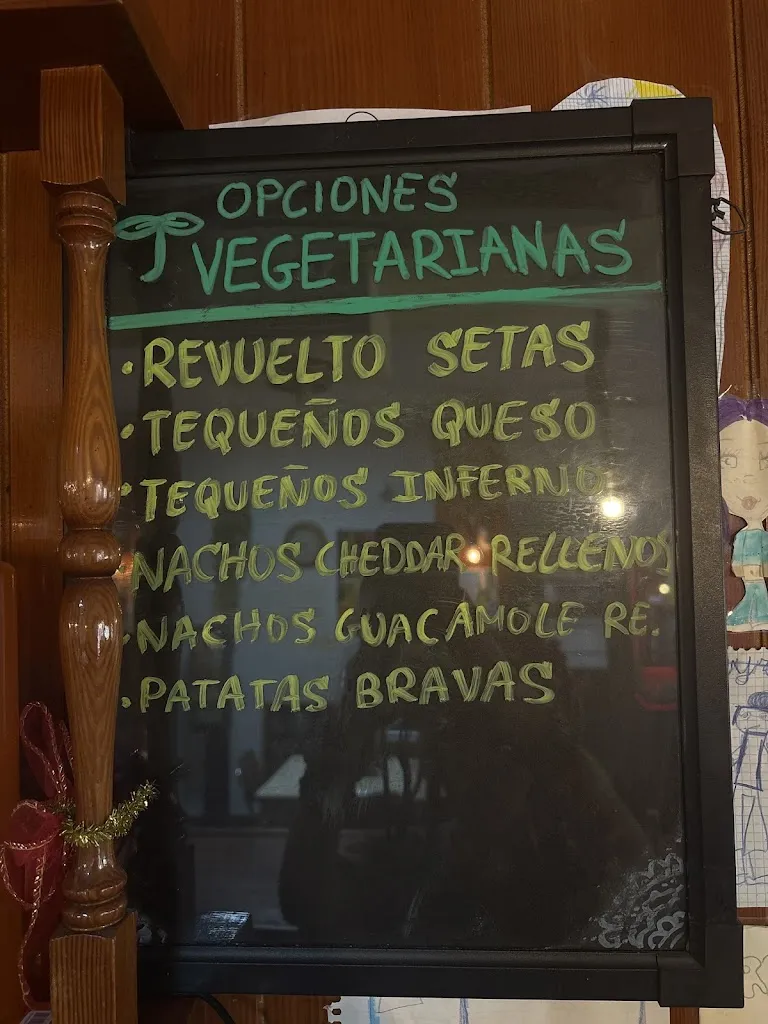 OPCIONES
VEGETARIANAS
• REVUELTO SETAS
• TEQUEÑOS QUESO
• TEQUEÑOS INFERNO
• NACHOS CHEDDAR RELLENOS
• NACHOS GUACAMOLE RE.
• PATATAS BRAVAS